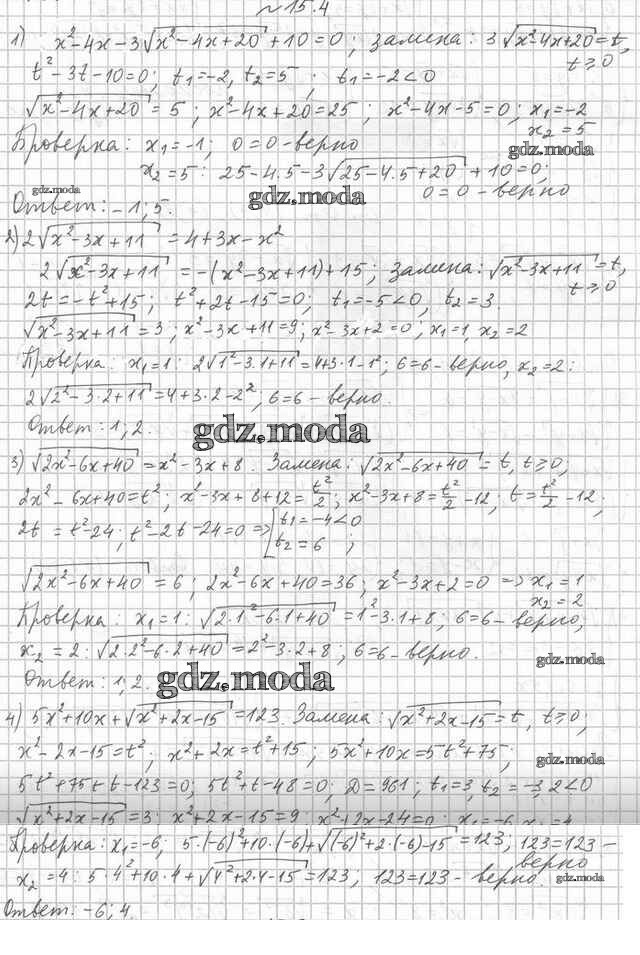 №15.4
1) x²-4x-3√(x²-4x+20)+10=0; замена: 3√(x²4x+20)=t,
t≥0
t²-3t-10=0; t₁=-2, t₂=5; t₁=-2<0
√(x²-4x+20)=5; x²-4x+20=25; x²-4x-5=0; x₁=-2
x₂=5
Проверка: x₁=-1; 0=0-верно
gdz.moda
x₂=5: 25-4.5-3√(25-4.5+20)+10=0;
gdz.moda
gdz.moda
0=0-верно
Ответ: -1; 5.
2) 2√(x²-3x+11)=4+3x-x²
2√(x²-3x+11)=-(x²-3x+11)+15; замена: √(x²-3x+11)=t,
t≥0
2t=-t²+15; t²+2t-15=0; t₁=-5<0, t₂=3.
√(x²-3x+11)=3; x²-3x+11=9; x²-3x+2=0; x₁=1, x₂=2
Проверка: x₁=1: 2√(1²-3.1+11)=4+3·1-1²; 6=6-верно, x₂=2:
2√(2²-3·2+11)=4+3·2-2²; 6=6-верно.
Ответ: 1, 2.
gdz.moda
3) √(2x²-6x+40)=x²-3x+8. Замена: √(2x²-6x+40)=t, t≥0;
2x²-6x+40=t²; x²-3x+8+12=t²/2; x²-3x+8=t²/2-12; t=t²/2-12;
2t=t²-24; t²-2t-24=0 => [t₁=-4<0
t₂=6;
√(2x²-6x+40)=6; 2x²-6x+40=36; x²-3x+2=0 => x₁=1
x₂=2
Проверка: x₁=1: √(2·1²-6·1+40)=1²-3.1+8; 6=6-верно;
x₂=2: √(2·2²-6·2+40)=2²-3·2+8; 6=6-верно.
gdz.moda
gdz.moda
Ответ: 1, 2.
4) 5x²+10x+√(x²+2x-15)=123. Замена: √(x²+2x-15)=t, t≥0;
x²-2x-15=t²; x²+2x=t²+15; 5x²+10x=5t²+75;
gdz.moda
5t²+75+t-123=0; 5t²+t-48=0; D=961; t₁=3, t₂=-3,2<0
√(x²+2x-15)=3; x²+2x-15=9; x²+2x-24=0; x₁=-6, x₂=4
Проверка: x₁=-6; 5·(-6)²+10·(-6)+√((-6)²+2·(-6)-15)=123; 123=123-
верно
x₂=4: 5·4²+10·4+√(4²+2·4-15)=123; 123=123-верно.
gdz.moda
Ответ: -6; 4.